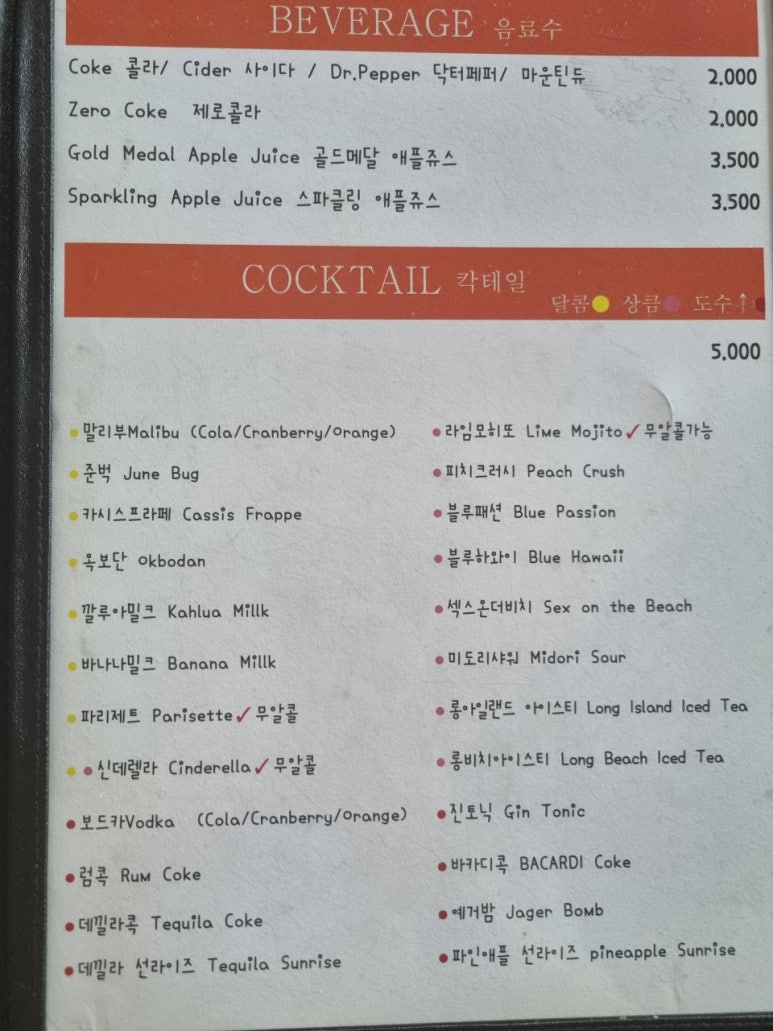 BEVERAGE 음료수
Coke 콜라/ Cider 사이다 / Dr.Pepper 닥터페퍼/ 마운틴듀 2.000
Zero Coke 제로콜라 2.000
Gold Medal Apple Juice 골드메달 애플쥬스 3.500
Sparkling Apple Juice 스파클링 애플쥬스 3.500
COCKTAIL 칵테일
달콤 상큼 도수↑
5.000
말리부Malibu (Cola/Cranberry/Orange)
준벅 June Bug
카시스프라페 Cassis Frappe
옥보단 Okbodan
깔루아밀크 Kahlua Millk
바나나밀크 Banana Millk
파리제트 Parisette✓무알콜
신데렐라 Cinderella✓무알콜
보드카Vodka (Cola/Cranberry/Orange)
럼콕 Rum Coke
데낄라콕 Tequila Coke
데낄라 선라이즈 Tequila Sunrise
라임모히또 Lime Mojito✓무알콜가능
피치크러시 Peach Crush
블루패션 Blue Passion
블루하와이 Blue Hawaii
섹스온더비치 Sex on the Beach
미도리샤워 Midori Sour
롱아일랜드 아이스티 Long Island Iced Tea
롱비치아이스티 Long Beach Iced Tea
진토닉 Gin Tonic
바카디콕 BACARDI Coke
예거밤 Jager Bomb
파인애플 선라이즈 pineapple Sunrise